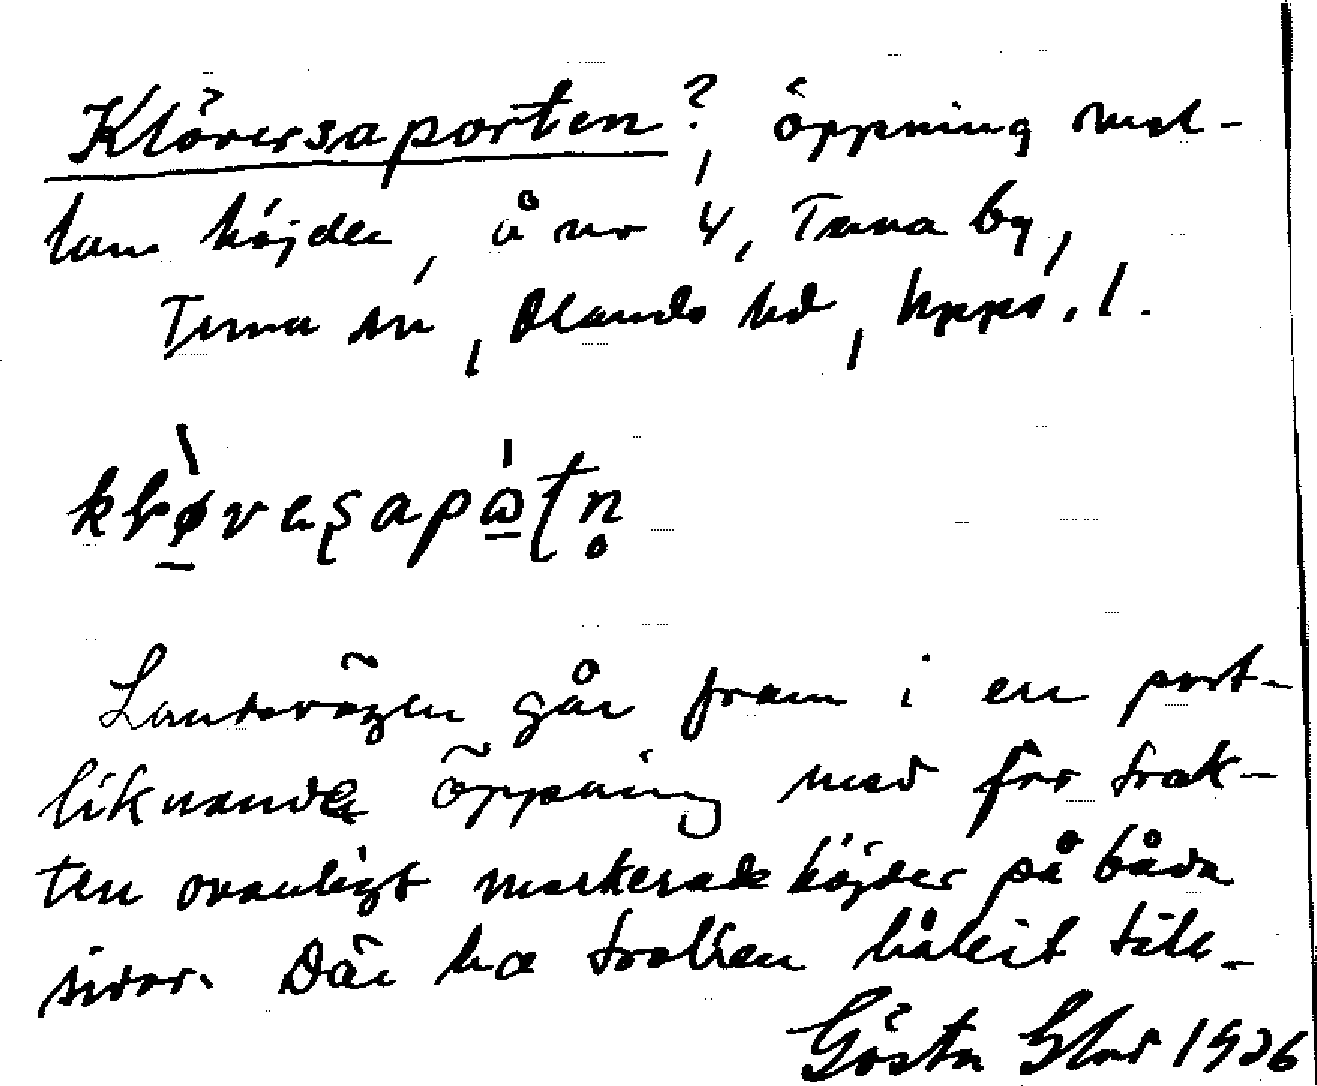 Klöversaporten?, öppning mel-
lan höjder, å nr 4, Tuna by,
Tuna sn, Olands hd, Upps. l.
Landsvägen går fram i en port-
liknande öppning med för trak-
ten ovanligt markerade höjder på båda
sidor. Där ha trollen hållit till-
Gösta 1936